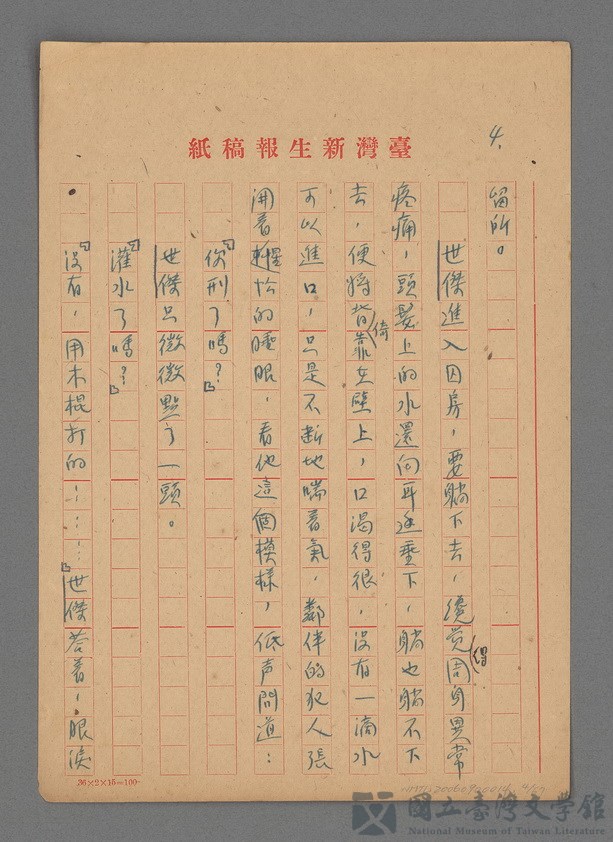 臺灣新生報稿紙
4.
留所。
世傑進入囚房，要躺下去，纔覺得周身異常
疼痛，頭髮上的水還向耳邊垂下，躺也躺不下
去，便將背倚靠在壁上，口渴得很，沒有一滴水
可以進口，只是不斷地喘着氣，鄰伴的犯人張
開着惺忪的睡眼，看他這個模樣，低声問道：
「你刑了嗎？」
世傑只微微點了一頭。
「灌水了嗎？」
「沒有，用木棍打的……」世傑答着，眼淚
36×2×15=100
國立臺灣文學館
National Museum of Taiwan Literature